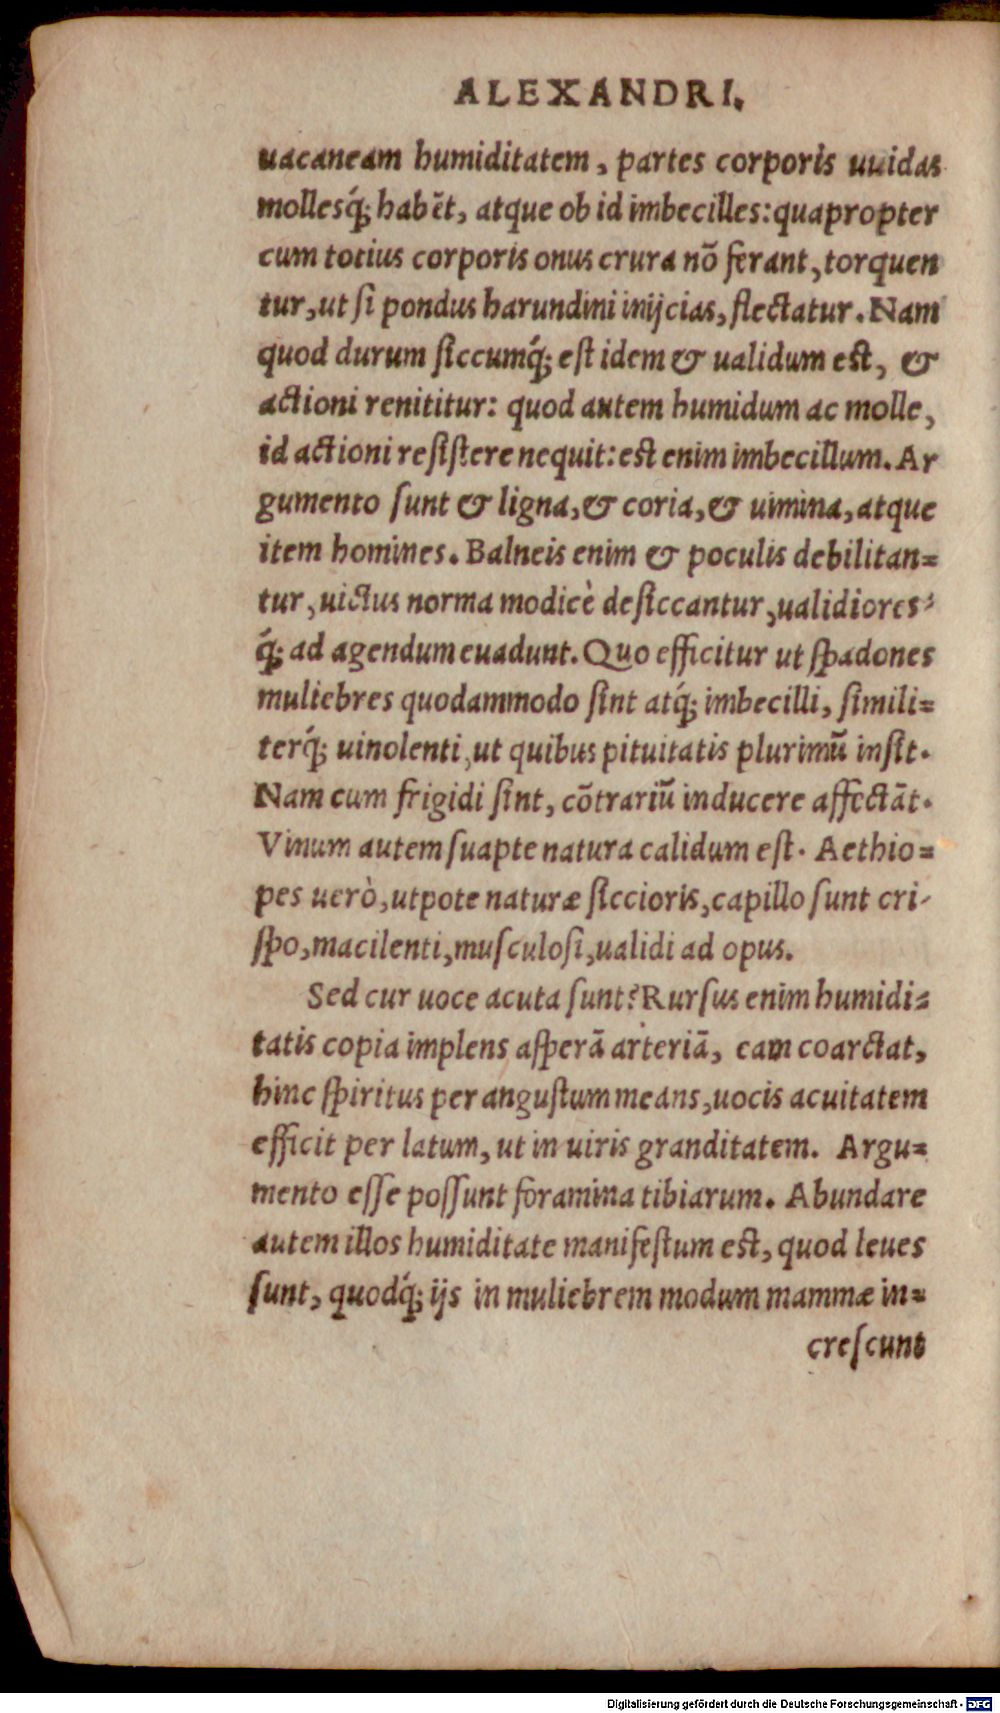 ALEXANDRI.
uacaneam humiditatem, partes corporis uuidas
mollesq́; habēt, atque ob id imbecilles: quapropter
cum totius corporis onus crura nō ferant, torquen
tur, ut ſi pondus harundini inijcias, flectatur. Nam
quod durum ſiccumq́; eſt idem & ualidum eſt, &
actioni renititur: quod autem humidum ac molle,
id actioni reſiſtere nequit: eſt enim imbecillum. Ar
gumento ſunt & ligna, & coria, & uimina, atque
item homines. Balneis enim & poculis debilitan=
tur, uictus norma modicè deſiccantur, ualidiores
q́; ad agendum euadunt. Quo efficitur ut ſpadones
muliebres quodammodo ſint atq́; imbecilli, ſimili=
terq́; uinolenti, ut quibus pituitatis plurimū inſit.
Nam cum frigidi ſint, cōtrariū inducere affectāt.
Vinum autem ſuapte natura calidum eſt. Aethio=
pes uerò, utpote naturæ ſiccioris, capillo ſunt cri-
ſpo, macilenti, muſculoſi, ualidi ad opus.
Sed cur uoce acuta ſunt? Rurſus enim humidi=
tatis copia implens aſperā arteriā, eam coarctat,
hinc ſpiritus per anguſtum means, uocis acuitatem
efficit per latum, ut in uiris granditatem. Argu=
mento eſſe poſſunt foramina tibiarum. Abundare
autem illos humiditate manifeſtum eſt, quod leues
ſunt, quodq́; ijs in muliebrem modum mammæ in=
creſcunt
Digitalisierung gefördert durch die Deutsche Forschungsgemeinschaft - DFG